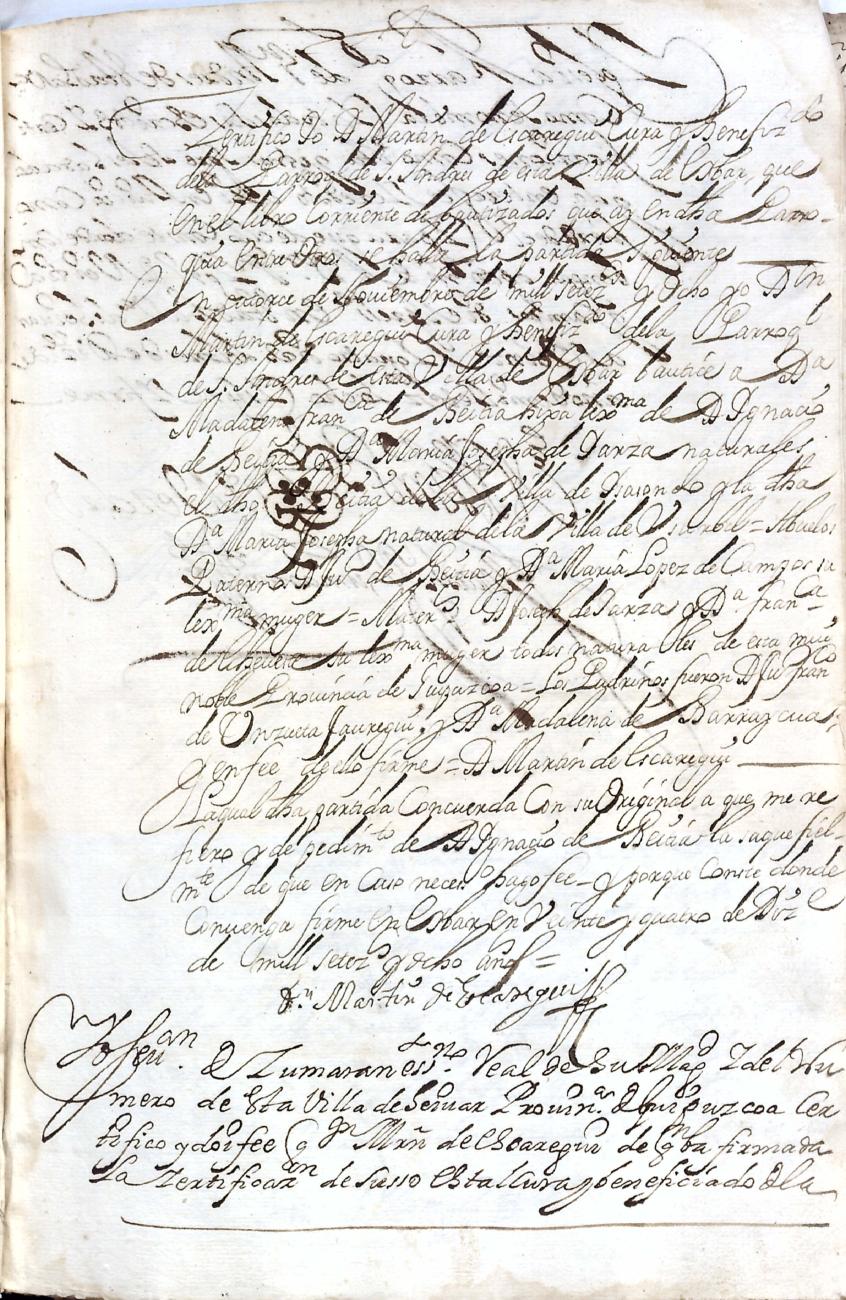 Zertifico Yo Dn Martin de Escaregui Cura y Benefizdo
dela Parroql de S. Andres de esta Villa de Eibar, que
en el libro Corriente de bautizados que ay en dha Parro-
quia entre otras se halla la partida siguiente
En catorce de Noviembre de mill setezs y ocho yo Dn
Martin de Escaregui Cura y Benefizdo dela Parroql
de S. Andres de esta Villa de Eibar bautice a Da
Madalena franca de Beitia hixa lexma de D Ignacio
de Beitia y Da Maria Josepha de Yarza naturales
el dho Beitia dela Villa de Elasondo y la dha
Da Maria Josepha natural dela Villa de Vsarbil = Abuelos
Paternos D Jun de Beitia y Da Maria Lopez de Campos su
lexma muger = Maternos D Joseph de Yarza y Da franca
de su lexma muger todos naturales de esta muy
noble Provincia de Guipuzcoa = Los Padrinos fueron D Jun franco
de Vnzueta Jauregui, y Da Madalena de
Y en fee de ello firme = D Martin de Escaregui
La qual dha partida Concuerda Con su Original a que me re
fiero y de pedimto de D Ignacio de Beitia la saque fiel-
mte de que en Caso neceso hago fee y porque Conste donde
Convenga firme en Eibar en Veinte y quatro de Dize
de mill setezs y ocho años =
Dn Martin de Escaregui
Yo Sevan de Zumaran essno Real de Su Magd y del Nu
mero de esta Villa de Heivar Provina de Guipuzcoa Cer
tifico y doi fee q Dn Mrn de Escaregui de qn ba firmada
La Zertificazon de suso es tal Cura y beneficiado de la